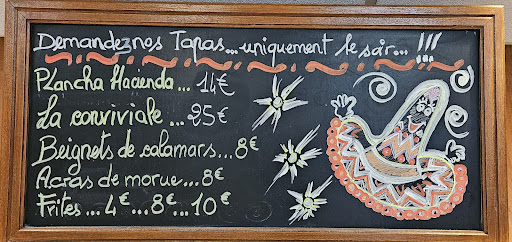 Demandez nos Tapas...uniquement le soir...!!!
Plancha Hacienda... 14€
La conviviale ... 25€
Beignets de calamars...8€
Acras de morue...8€
Frites...4€...8€...10€